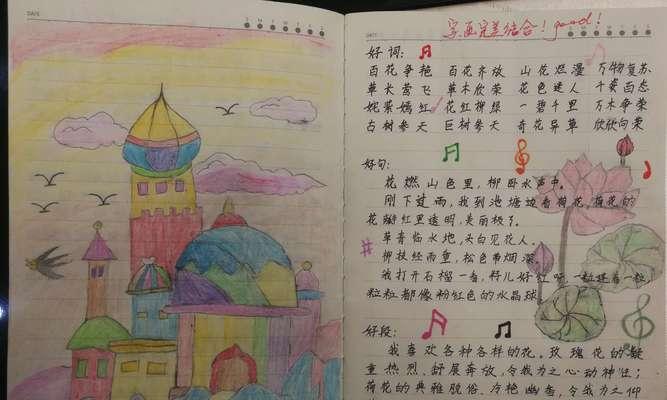 DATE
S M T W T F S
DATE
字画完美结合！good！
好词：
百花争艳 百花齐放 山花烂漫 万物复苏
草长莺飞 草木欣荣 花色迷人 千姿百态
姹紫嫣红 花红柳绿 一碧千里 万木争荣
古树参天 巨树参天 奇花异草 欣欣向荣
好句：
花燃山色里，柳卧水声中。
刚下过雨，我到池塘边看荷花，荷花的
花瓣红里透明，美丽极了。
草青临水地，头白见花人。
柳枝经雨重，松色带烟深。
我打开石榴一看，籽儿好红呀，一粒挨着一粒
粒粒都像粉红色的水晶球
好段：
我喜欢各种各样的花。玫瑰花的凝
重热烈、舒展奔放，令我为之心动神往；
荷花的典雅脱俗、冷艳幽香，令我为之仰